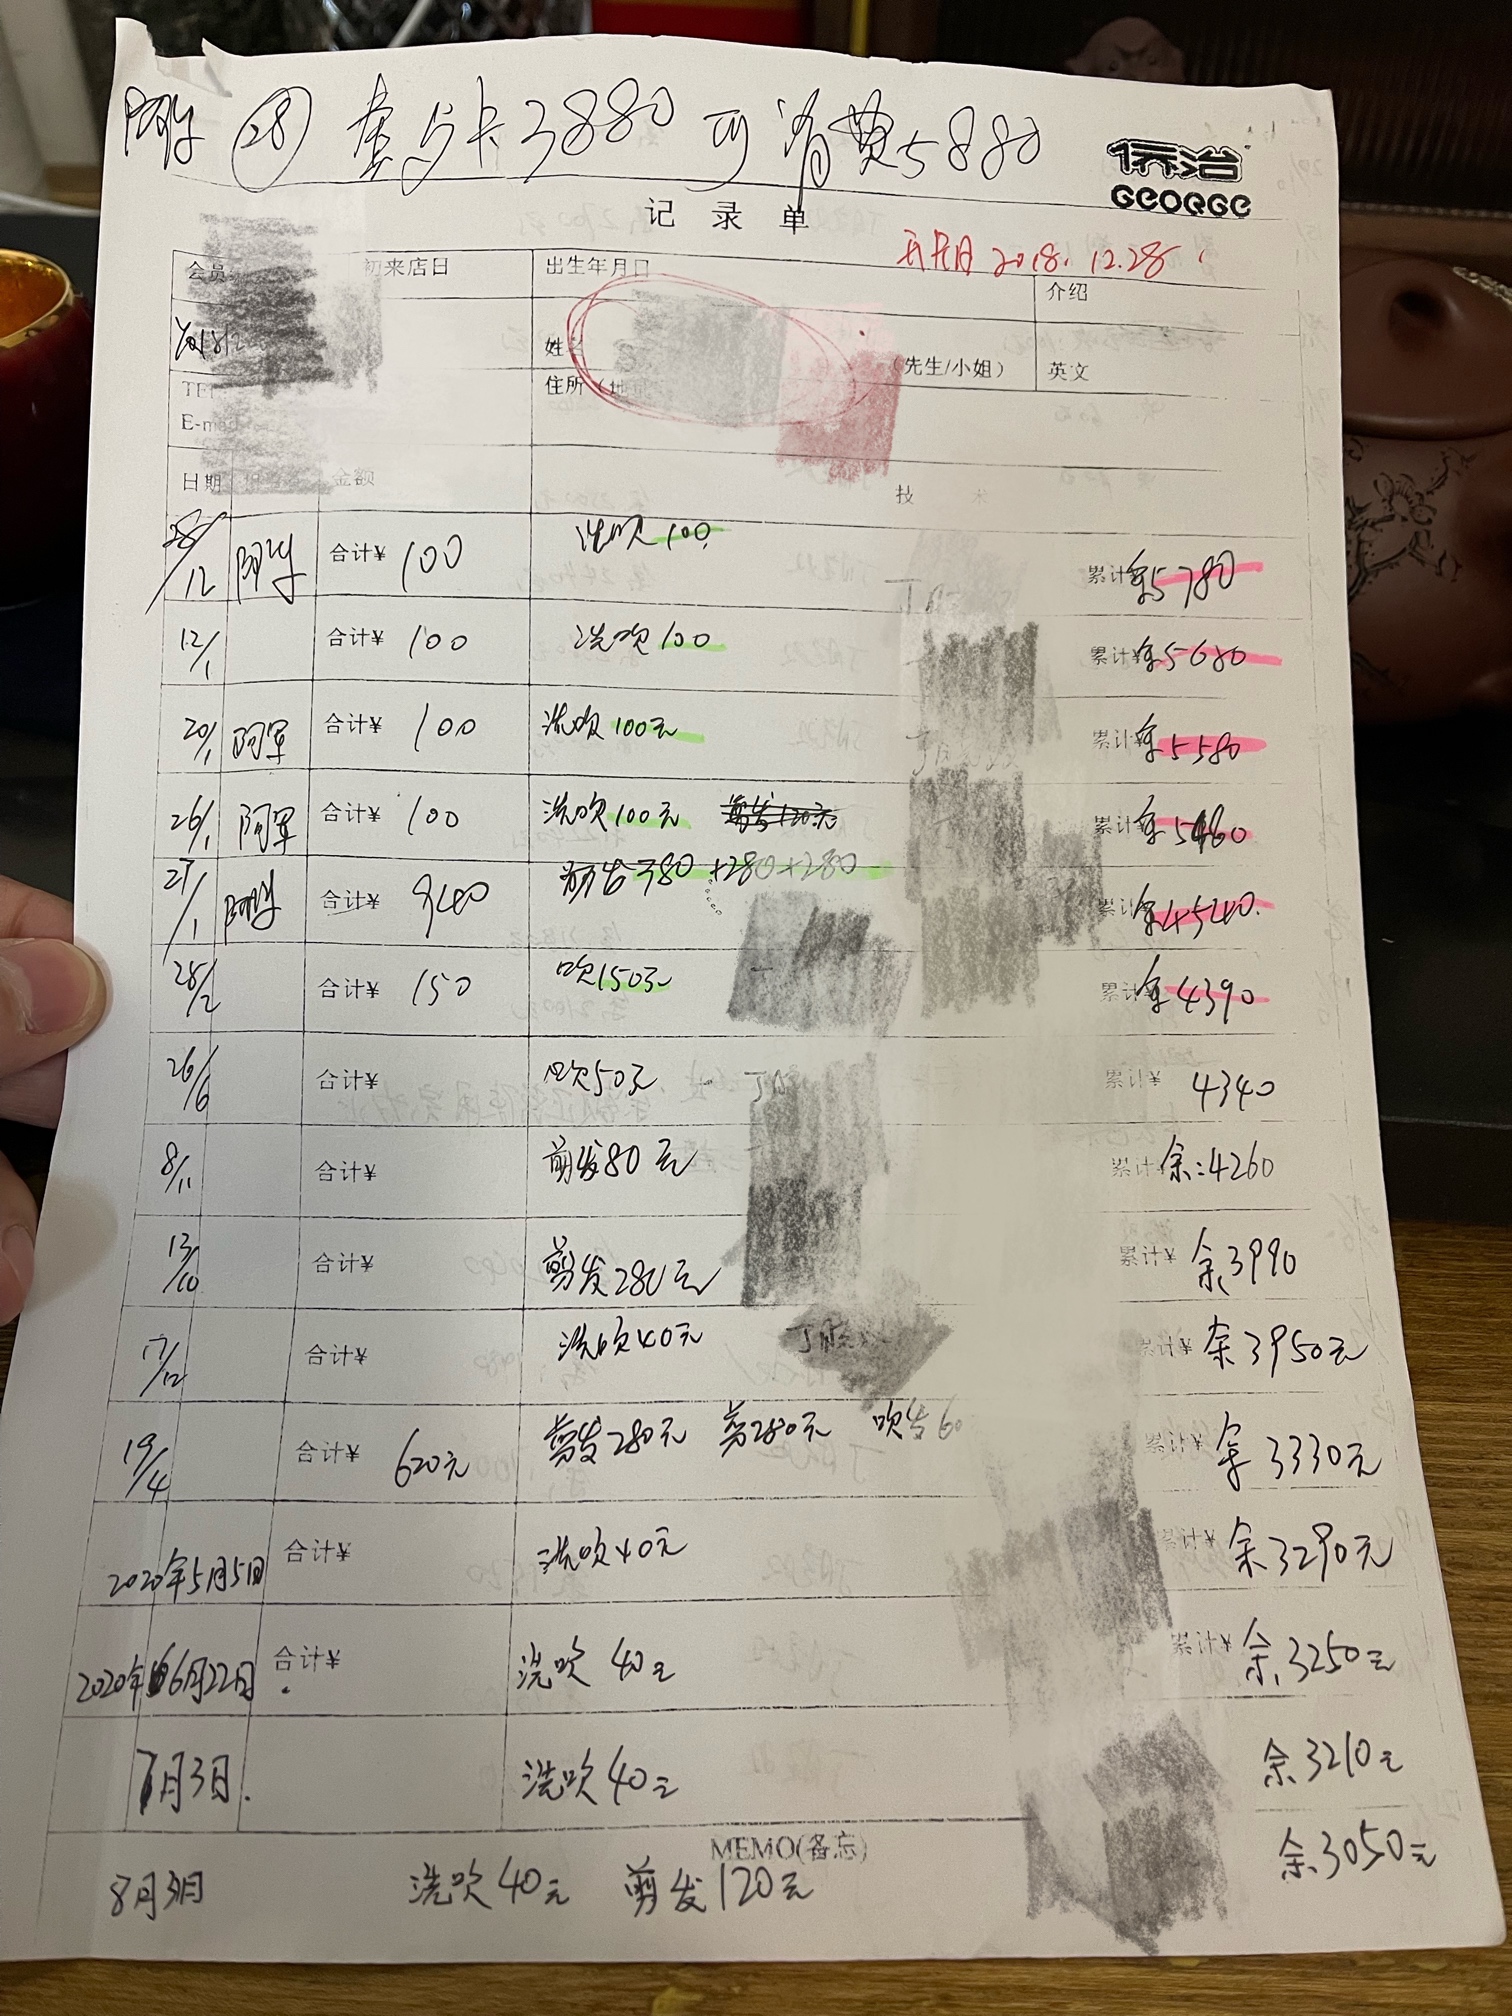 28 套卡3880可消费5880
侨治
GEORGE
记 录 单
开卡日 2018.12.28
会员 初来店日 出生年月日 介绍
姓名 (先生/小姐) 英文
住所(地址
E-mail
日期 金额 技 术
28/12 合计¥ 100 洗吹100 累计¥ 余5780
12/1 合计¥ 100 洗吹100 累计¥ 余5680
20/1 阿军 合计¥ 100 洗吹100元 累计¥ 余5580
26/1 阿军 合计¥ 100 洗吹100元 剪发120元 累计¥ 余5480
27/1 合计¥ 940 剪发380+280+280 累计¥ 余4540
28/2 合计¥ 150 吹150元 累计¥ 余4390
26/6 合计¥ 吹50元 累计¥ 4340
8/11 合计¥ 剪发80元 累计 余:4260
13/10 合计¥ 剪发280元 累计¥ 余3990
17/12 合计¥ 洗吹40元 累计¥ 余3950元
19/4 合计¥ 620元 剪发280元 剪280元 吹发60 累计¥ 余3330元
2020年5月5日 合计¥ 洗吹40元 累计¥ 余3290元
2020年6月22日 合计¥ 洗吹40元 累计¥ 余3250元
7月3日. 洗吹40元 余3210元
MEMO(备忘)
8月3日 洗吹40元 剪发120元 余3050元